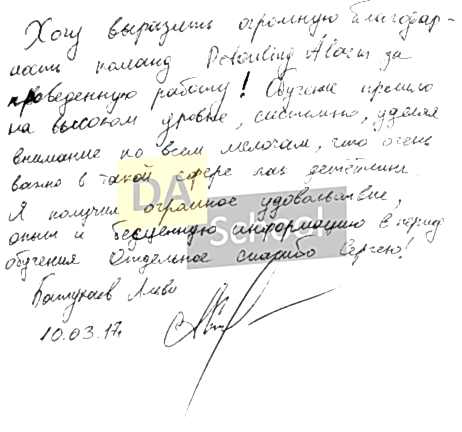 Хочу выразить огромную благодар-
ность команд Detailing Alians за
проведенную работу! Обучение прошло
на высоком уровне, системно, уделяя
внимание ко всем мелочам, что очень
важно в такой сфере как детейлинг.
Я получил огромное удовольствие,
опыт и бесценную информацию в период
обучения Отдельное спасибо Сергею!
10.03.17г.
DA
School